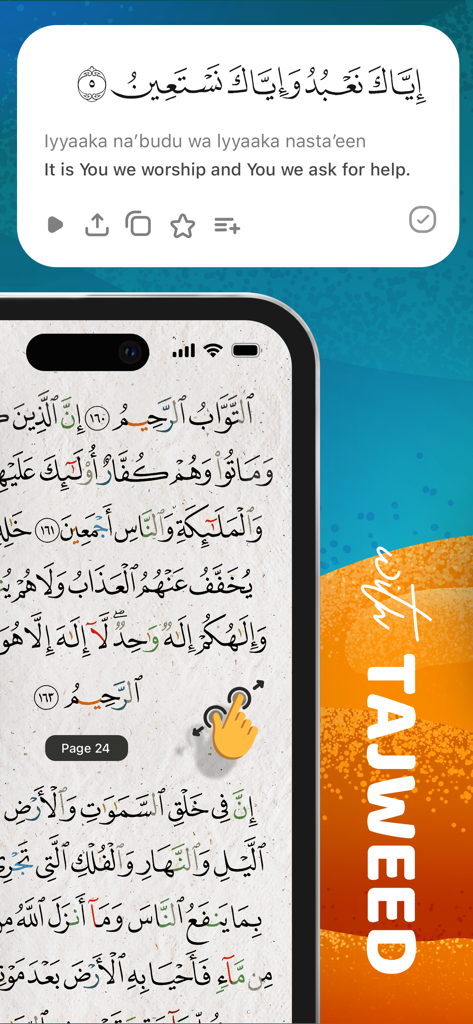 إِيَّاكَ نَعْبُدُ وَإِيَّاكَ نَسْتَعِينُ ٥
Iyyaaka na’budu wa Iyyaaka nasta’een
It is You we worship and You we ask for help.
ٱلتَّوَّابُ ٱلرَّحِيمُ ١٦٠ إِنَّ ٱلَّذِينَ
وَمَاتُوا۟ وَهُمْ كُفَّارٌ أُو۟لَٰٓئِكَ عَلَيْهِ
وَٱلْمَلَٰٓئِكَةِ وَٱلنَّاسِ أَجْمَعِينَ ١٦١
يُخَفَّفُ عَنْهُمُ ٱلْعَذَابُ وَلَا هُمْ
وَإِلَٰهُكُمْ إِلَٰهٌ وَٰحِدٌ ۖ لَّآ إِلَٰهَ إِلَّا هُوَ
ٱلرَّحِيمُ ١٦٣
Page 24
إِنَّ فِى خَلْقِ ٱلسَّمَٰوَٰتِ وَٱلْأَرْضِ
ٱلَّيْلِ وَٱلنَّهَارِ وَٱلْفُلْكِ ٱلَّتِى تَجْرِى
بِمَا يَنفَعُ ٱلنَّاسَ وَمَآ أَنزَلَ ٱللَّهُ مِنَ
مِن مَّآءٍ فَأَحْيَا بِهِ ٱلْأَرْضَ بَعْدَ مَوْتِ
with
TAJWEED